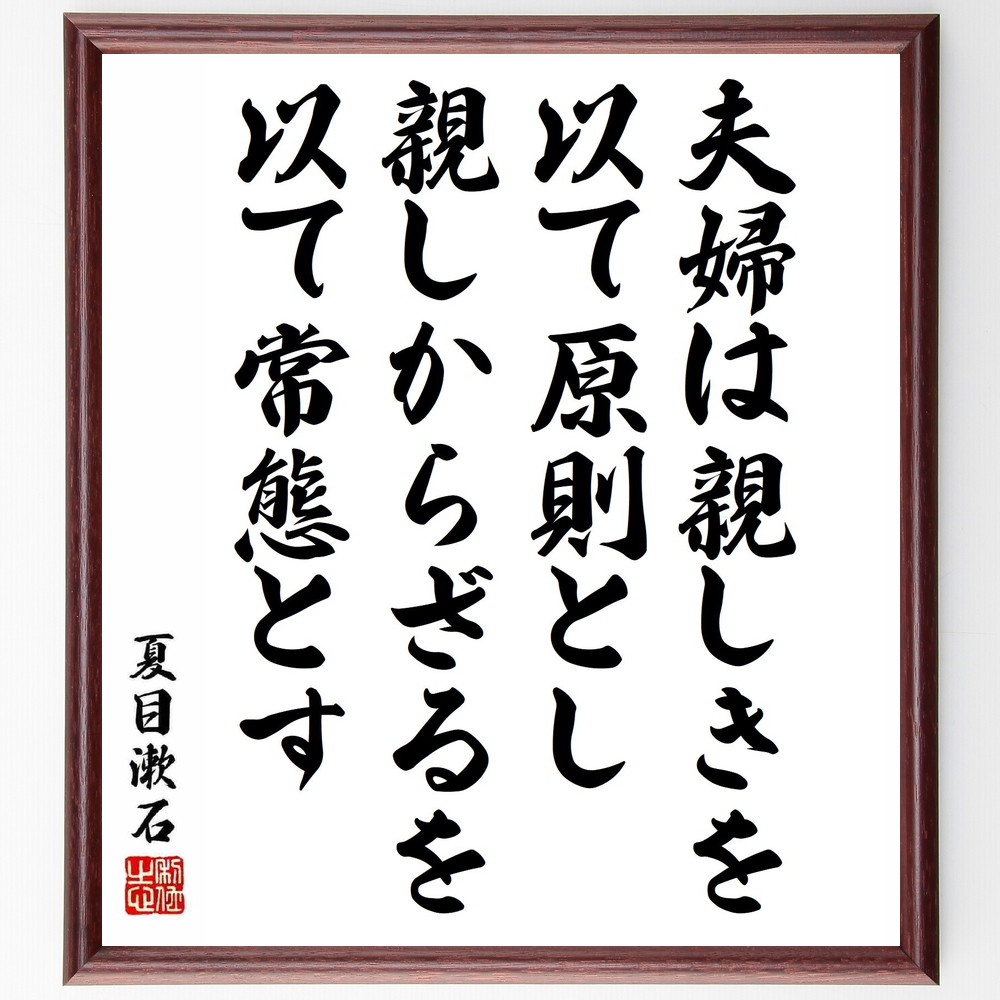 夫婦は親しきを
以て原則とし
親しからざるを
以て常態とす
夏目漱石